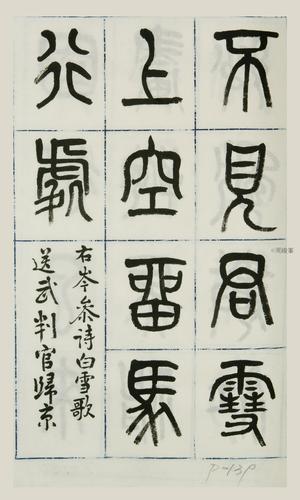 不見君雪
上空留馬
行處
右岑參詩白雪歌
送武判官歸京
P-13P